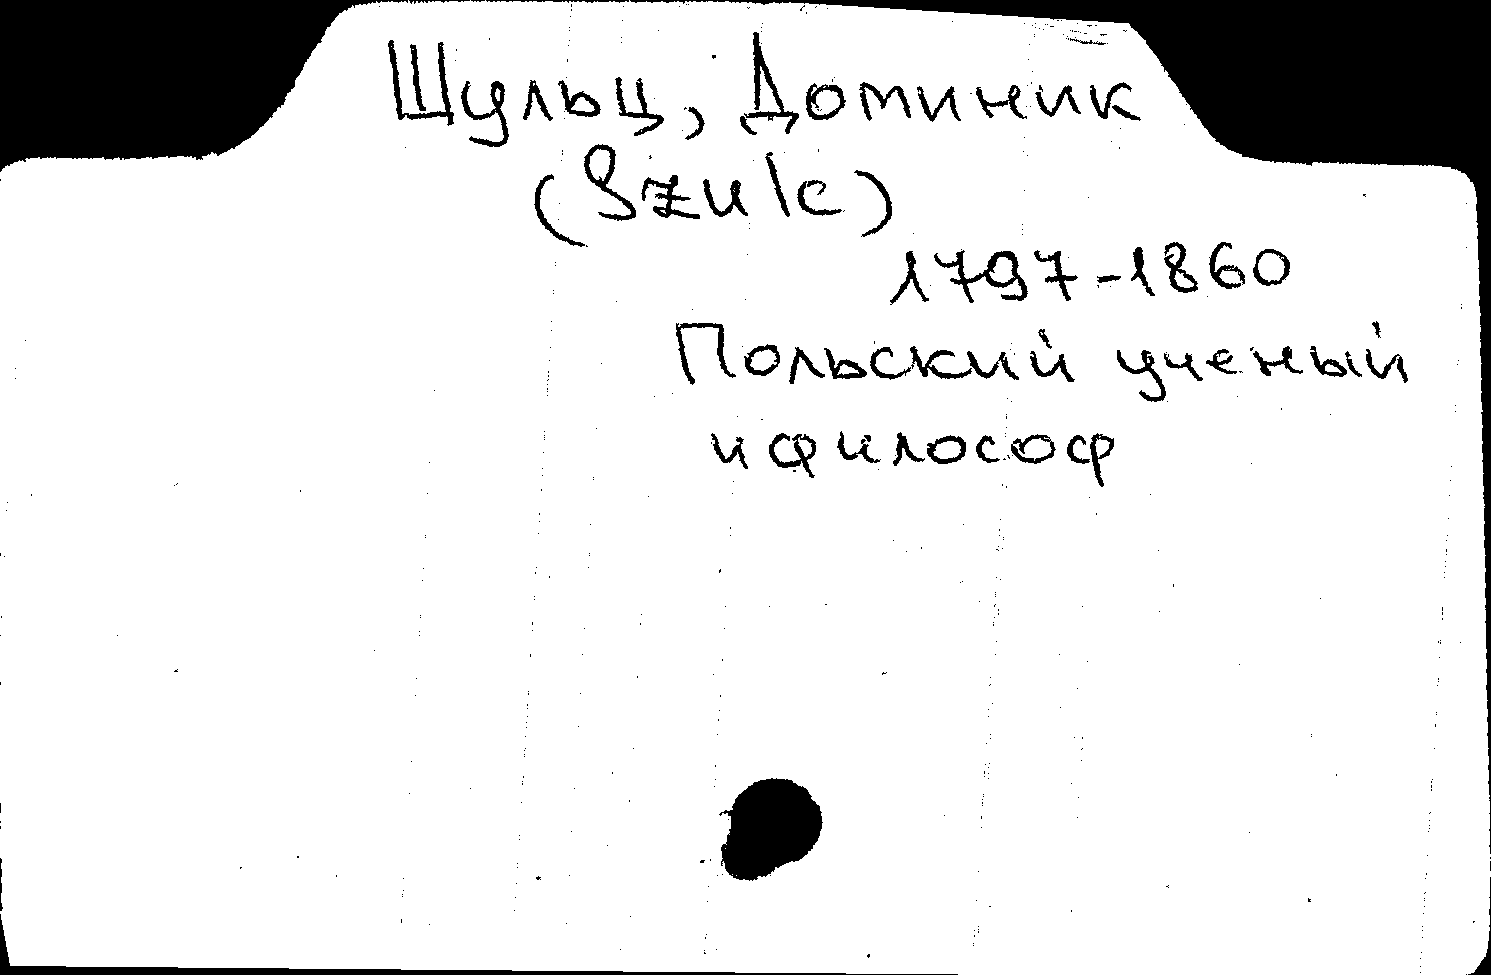 Шульц, Доминик
(Szulc)
1797-1860
Польский ученый
и философ